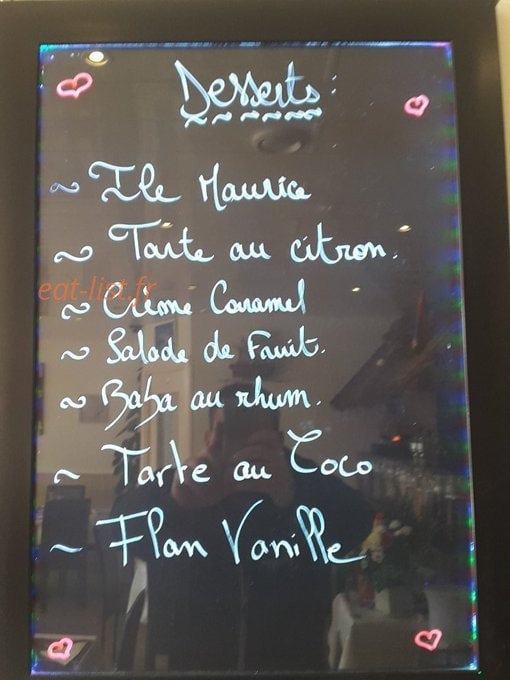 Desserts :
~ Ile Maurice
~ Tarte au citron.
eat-list.fr
~ Crème Caramel
~ Salade de Fruit.
~ Baba au rhum.
~ Tarte au Coco
~ Flan Vanille